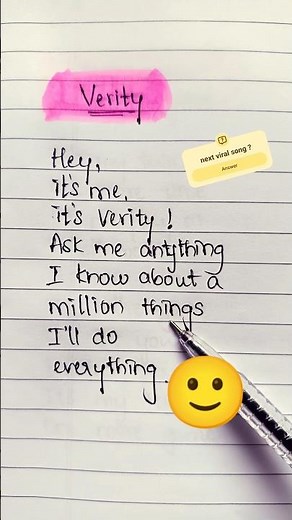 Verity
next viral song ?
Answer
Hey,
it's me,
it's Verity !
Ask me antything
I know about a
million things
I'll do
everything.